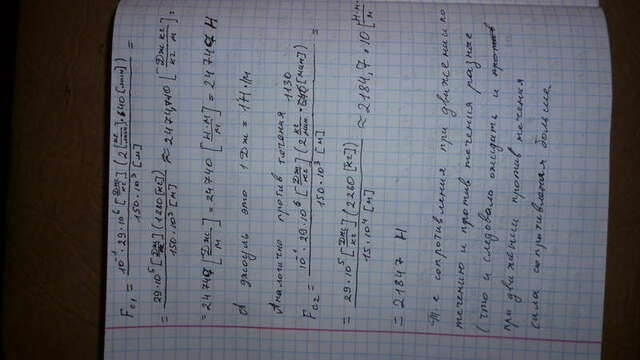 F_c1 = 10⁻¹·29·10⁶ [Дж/кг] (2 [кг/мин]·640 [мин]) / 150·10³ [м] =
= 29·10⁵ [Дж/кг] (1280 [кг]) / 150·10³ [м] ≈ 2474,10 [Дж кг / кг м] =
= 24740 [Дж/м] = 24740 [Н·м/м] = 24740 Н
А джоуль это 1 Дж = 1Н·1м
Аналогично против течения
F_c2 = 10⁻¹·29·10⁶ [Дж/кг] (2 кг/мин · 1130 [мин]) / 150·10³ [м] =
= 29·10⁵ [Дж/кг] (2260 [кг]) / 15·10⁴ [м] ≈ 2184,7·10 [Н·м/м]
= 21847 Н
Т.е сопротивления при движении по
течению и против течения разные
(что и следовало ожидать и
при движении против течения
сила сопротивления больше